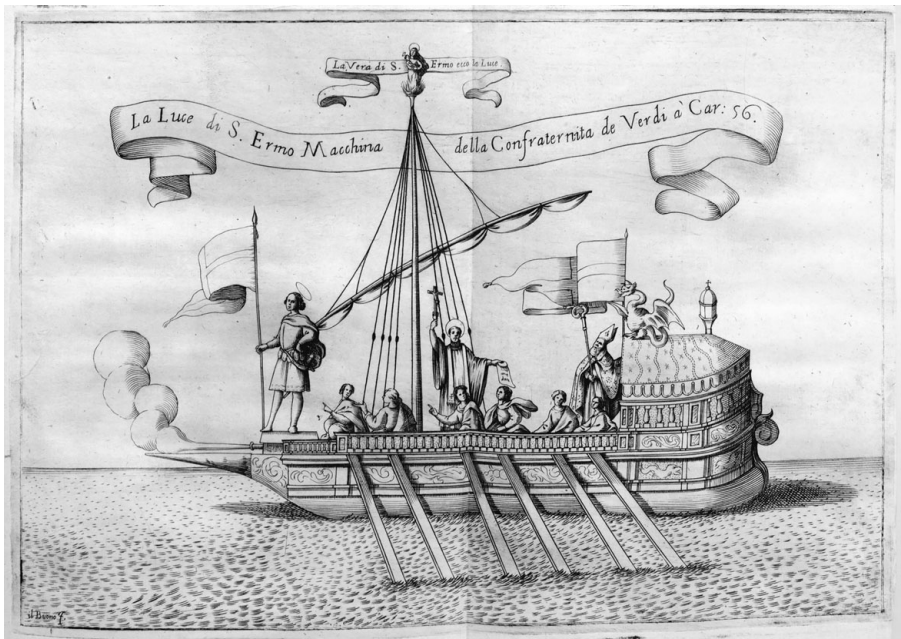 La Vera di S. Ermo ecco la Luce
La Luce di S. Ermo Macchina della Confraternita de Verdi à Car: 56.
il Buono f.